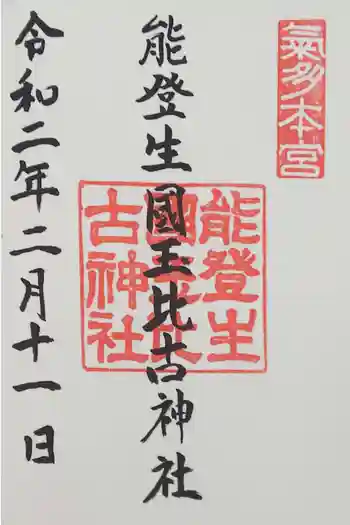 氣多本宮
能登生國玉比古神社
能登生
國玉比
古神社
令和二年二月十一日